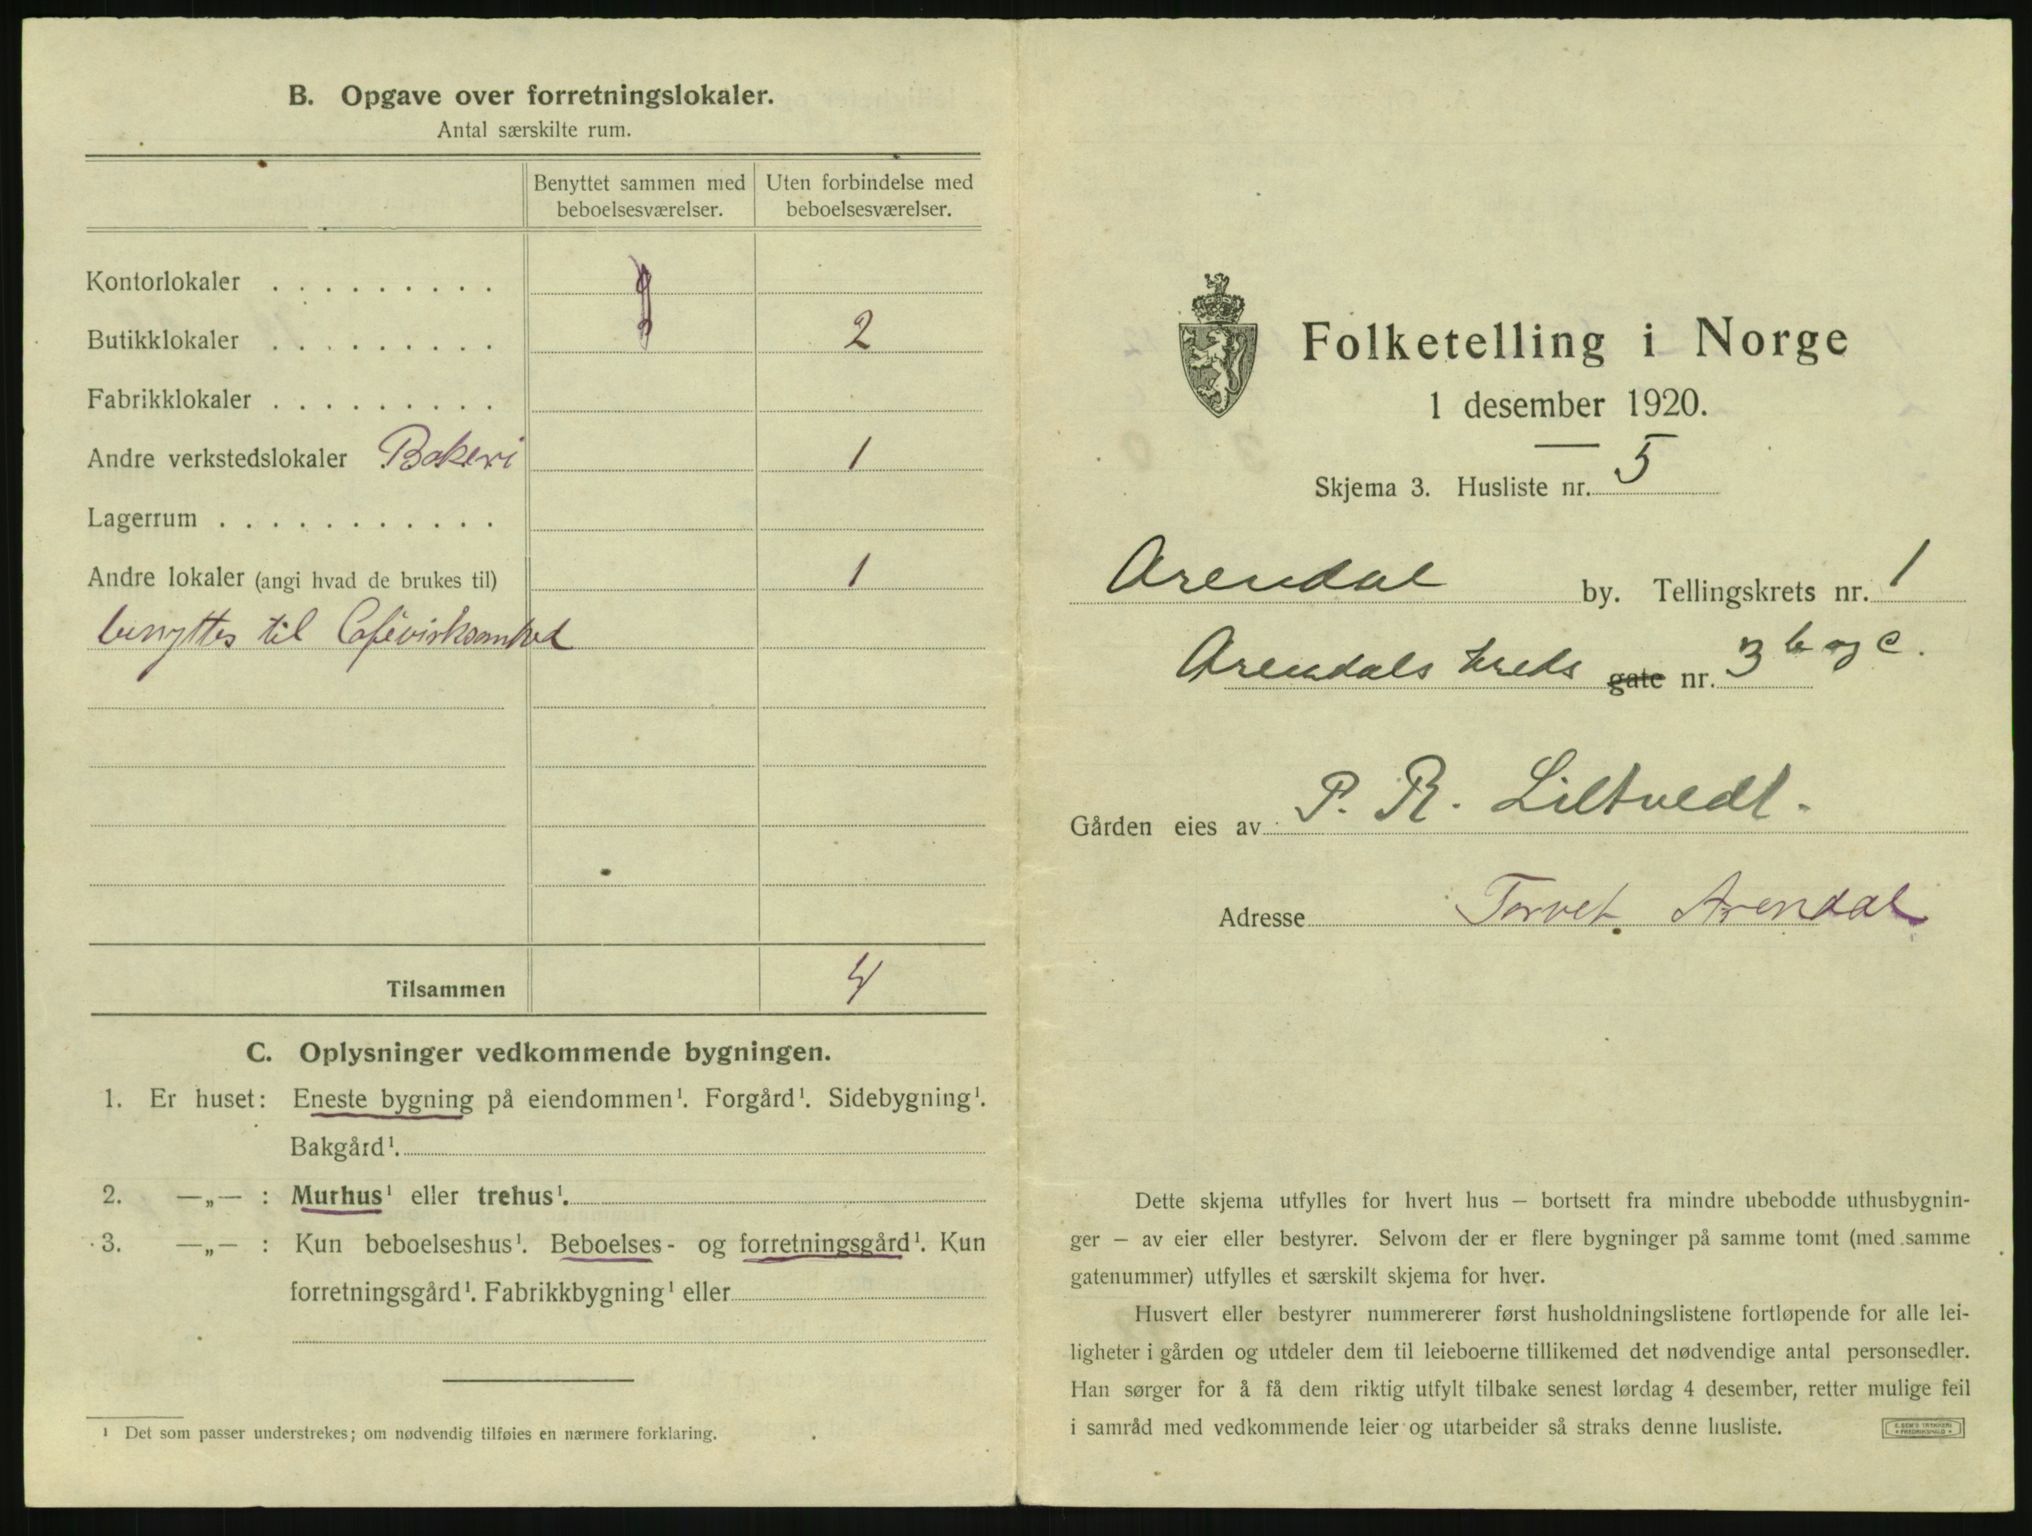 B. Opgave over forretningslokaler.
Antal særskilte rum.
Benyttet sammen med beboelsesværelser.
Uten forbindelse med beboelsesværelser.
Kontorlokaler . . . . . . . . .
Butikklokaler . . . . . . . . . 2
Fabrikklokaler . . . . . . . . .
Andre verkstedslokaler Bakeri 1
Lagerrum . . . . . . . . . . .
Andre lokaler (angi hvad de brukes til) 1
benyttes til Cafévirksomhed
Tilsammen 4
C. Oplysninger vedkommende bygningen.
1. Er huset: Eneste bygning på eiendommen¹. Forgård¹. Sidebygning¹.
Bakgård¹.
2. —„— : Murhus¹ eller trehus¹.
3. —„— : Kun beboelseshus¹. Beboelses- og forretningsgård¹. Kun
forretningsgård¹. Fabrikkbygning¹ eller
¹ Det som passer understrekes; om nødvendig tilføies en nærmere forklaring.
Folketelling i Norge
1 desember 1920.
Skjema 3. Husliste nr. 5
Arendal by. Tellingskrets nr. 1
Arendals treds gate nr. 3 b og c.
Gården eies av P. R. Liltvedt.
Adresse Torvet Arendal
Dette skjema utfylles for hvert hus — bortsett fra mindre ubebodde uthusbygnin-
ger — av eier eller bestyrer. Selvom der er flere bygninger på samme tomt (med samme
gatenummer) utfylles et særskilt skjema for hver.
Husvert eller bestyrer nummererer først husholdningslistene fortløpende for alle lei-
ligheter i gården og utdeler dem til leieboerne tillikemed det nødvendige antal personsedler.
Han sørger for å få dem riktig utfylt tilbake senest lørdag 4 desember, retter mulige feil
i samråd med vedkommende leier og utarbeider så straks denne husliste.